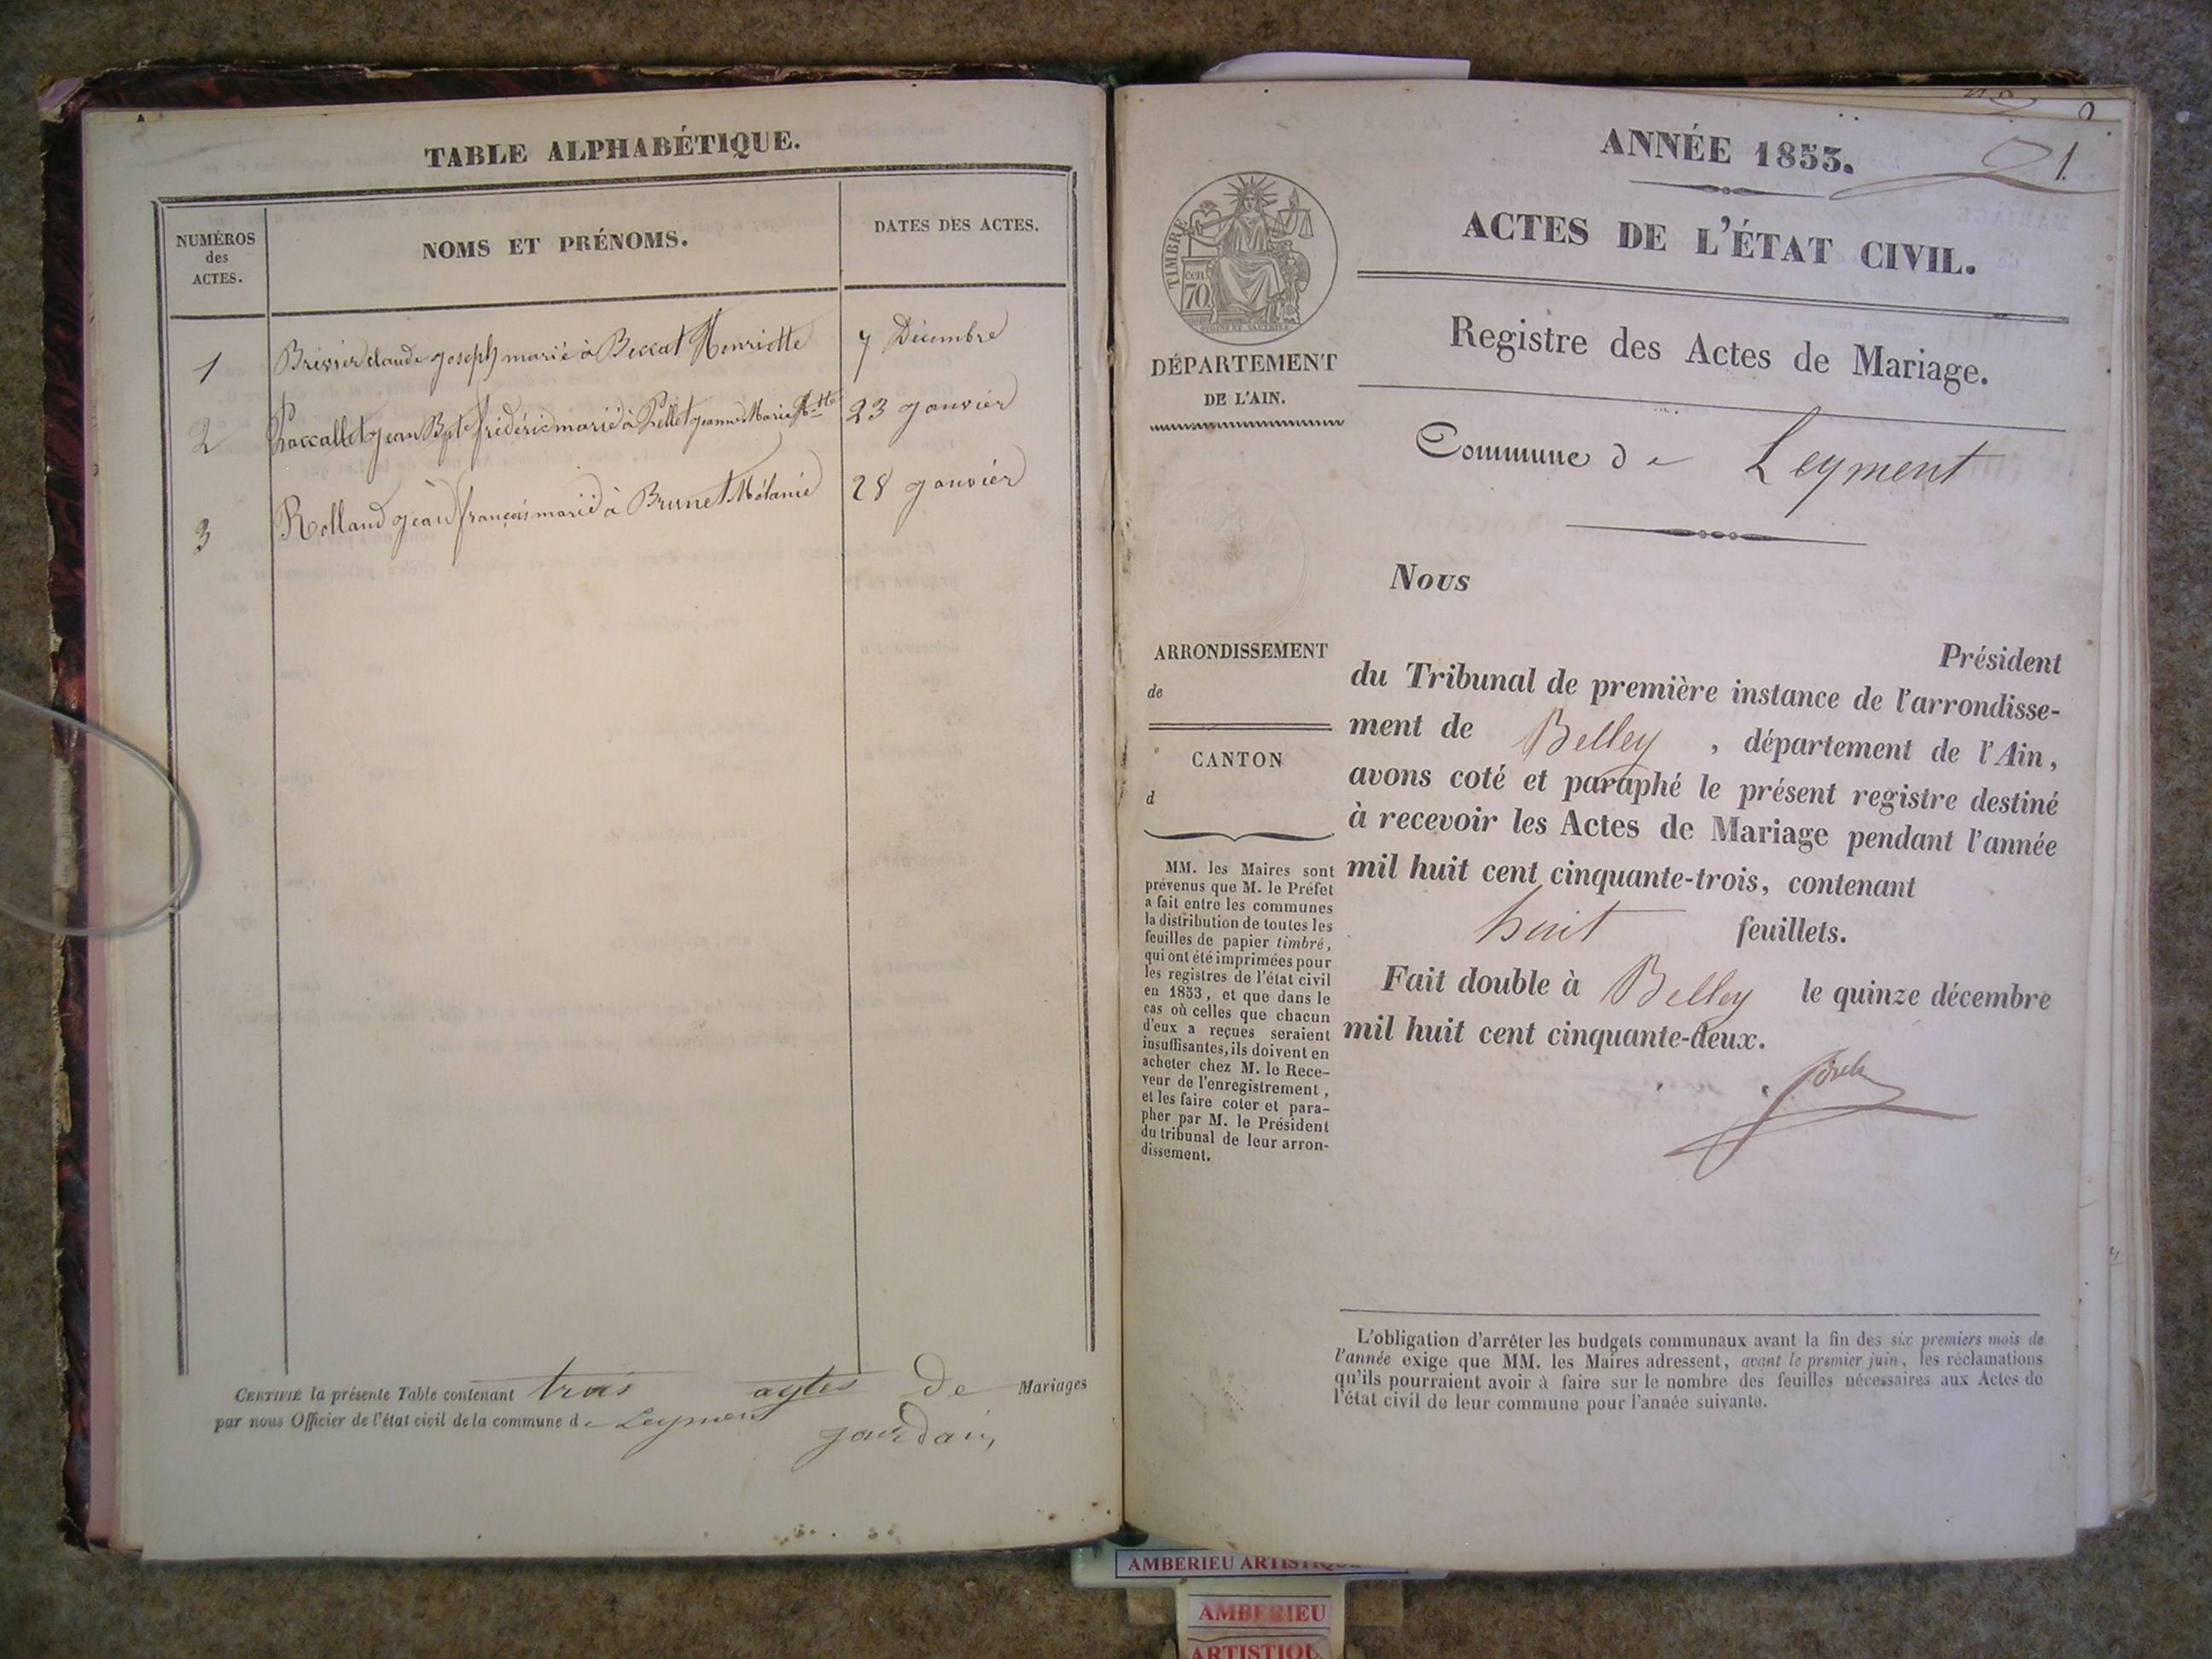 TABLE ALPHABÉTIQUE.
NUMÉROS
des
ACTES.
NOMS ET PRÉNOMS.
DATES DES ACTES.
1 Brivier claude joseph marié à Beccat Henriette 7 Décembre
2 jean Bpte frédéric marié à Pellet jeanne Marie 23 janvier
3 Rolland jean françois marié à Brunet Mélanie 28 janvier
CERTIFIÉ la présente Table contenant trois actes de Mariages
par nous Officier de l'état civil de la commune de Leyment
jourdain
ANNÉE 1853.
1.
ACTES DE L'ÉTAT CIVIL.
TIMBRE
cen
70
DÉPARTEMENT
DE L'AIN.
Registre des Actes de Mariage.
Commune de Leyment
Nous
Président
du Tribunal de première instance de l'arrondisse-
ment de Belley, département de l'Ain,
avons coté et paraphé le présent registre destiné
à recevoir les Actes de Mariage pendant l'année
mil huit cent cinquante-trois, contenant
huit feuillets.
Fait double à Belley le quinze décembre
mil huit cent cinquante-deux.
ARRONDISSEMENT
de
CANTON
d
MM. les Maires sont
prévenus que M. le Préfet
a fait entre les communes
la distribution de toutes les
feuilles de papier timbré,
qui ont été imprimées pour
les registres de l'état civil
en 1853, et que dans le
cas où celles que chacun
d'eux a reçues seraient
insuffisantes, ils doivent en
acheter chez M. le Rece-
veur de l'enregistrement,
et les faire coter et para-
pher par M. le Président
du tribunal de leur arron-
dissement.
L'obligation d'arrêter les budgets communaux avant la fin des six premiers mois de
l'année exige que MM. les Maires adressent, avant le premier juin, les réclamations
qu'ils pourraient avoir à faire sur le nombre des feuilles nécessaires aux Actes de
l'état civil de leur commune pour l'année suivante.
AMBERIEU ARTISTIQUE
AMBERIEU
ARTISTIQU